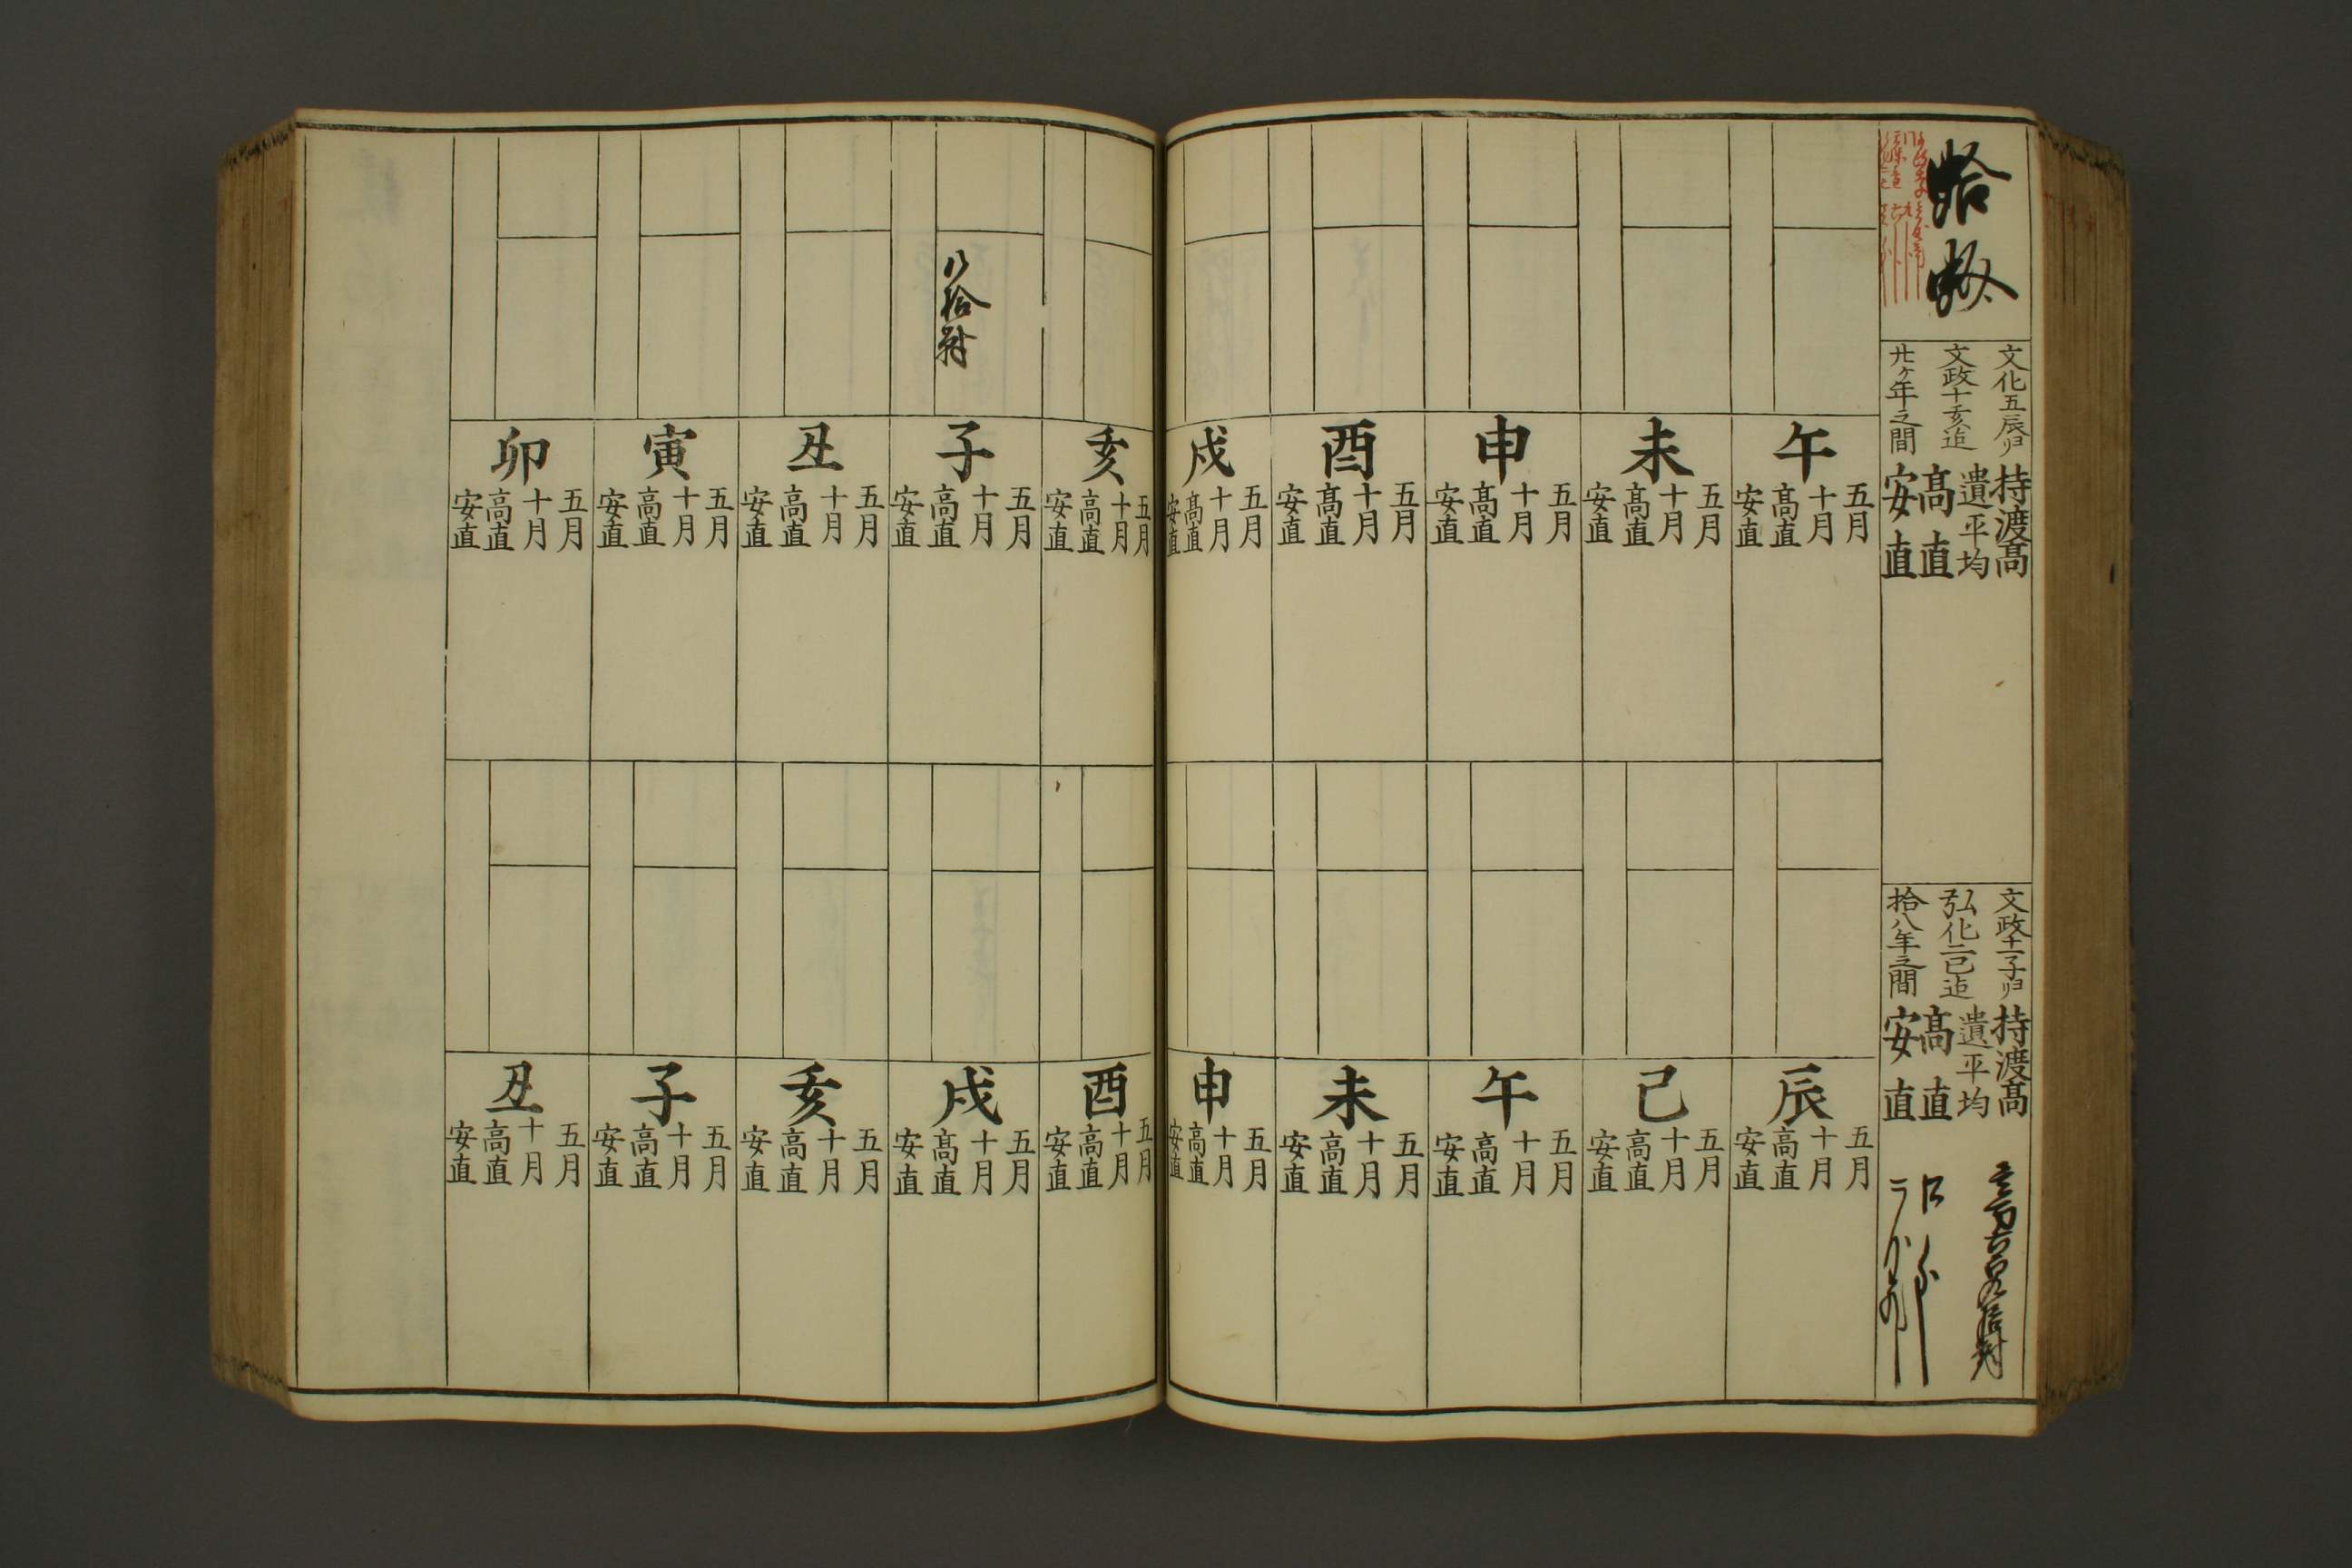 蛤蚧
文化五辰ゟ
文政十亥迠
廿ヶ年之間
持渡髙
遺平均
髙直
安直
文政十一子ゟ
弘化二巳迠
拾八年之間
持渡髙
遺平均
髙直
安直
午
五月
十月
髙直
安直
未
五月
十月
髙直
安直
申
五月
十月
髙直
安直
酉
五月
十月
髙直
安直
戌
五月
十月
髙直
安直
亥
五月
十月
髙直
安直
子
五月
十月
髙直
安直
八拾対
丑
五月
十月
髙直
安直
寅
五月
十月
髙直
安直
卯
五月
十月
髙直
安直
辰
五月
十月
髙直
安直
己
五月
十月
髙直
安直
午
五月
十月
髙直
安直
未
五月
十月
髙直
安直
申
五月
十月
髙直
安直
酉
五月
十月
髙直
安直
戌
五月
十月
髙直
安直
亥
五月
十月
髙直
安直
子
五月
十月
髙直
安直
丑
五月
十月
髙直
安直